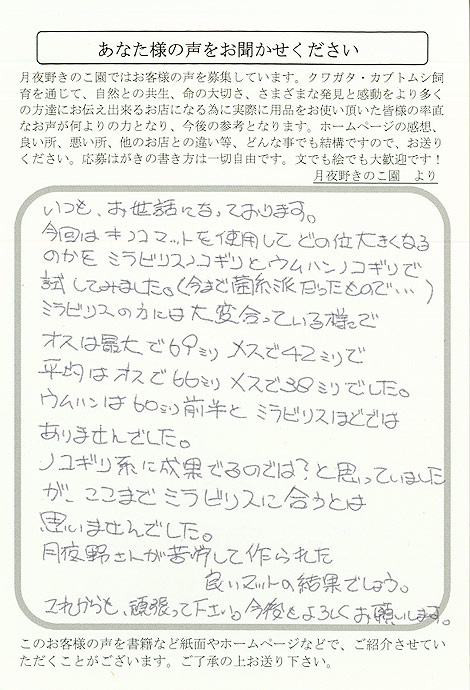 あなた様の声をお聞かせください
月夜野きのこ園ではお客様の声を募集しています。クワガタ・カブトムシ飼
育を通じて、自然との共生、命の大切さ、さまざまな発見と感動をより多く
の方達にお伝え出来るお店になる為に実際に用品をお使い頂いた皆様の率直
なお声が何よりの力となり、今後の参考となります。ホームページの感想、
良い所、悪い所、他のお店との違い等、どんな事でも結構ですので、お送り
ください。応募はがきの書き方は一切自由です。文でも絵でも大歓迎です！
月夜野きのこ園　より
いつも、お世話になっております。
今回はキノコマットを使用してどの位大きくなる
のかをミラビリスノコギリとウムハンノコギリで
試してみました。(今まで菌糸派だったもので…)
ミラビリスの方には大変合っている様で
オスは最大で69ミリメスで42ミリで
平均はオスで66ミリメスで38ミリでした。
ウムハンは60ミリ前半とミラビリスほどでは
ありませんでした。
ノコギリ系に成果でるのでは?と思っていました
が、ここまでミラビリスに合うとは
思いませんでした。
月夜野さんが苦労して作られた
良いマットの結果でしょう。
これからも、頑張って下さい。今後もよろしくお願いします。
このお客様の声を書籍など紙面やホームページなどで、ご紹介させてい
ただくことがございます。ご了承の上お送り下さい。